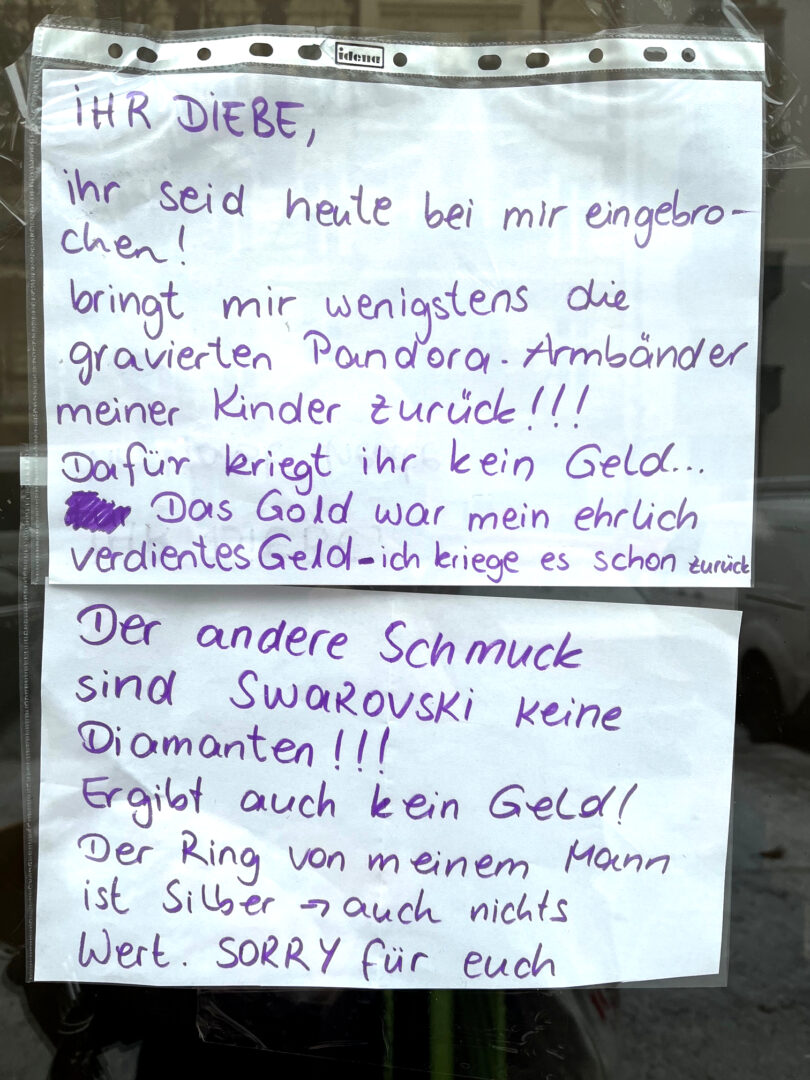 idena
iHR DiEBE,
ihr seid heute bei mir eingebro-
chen!
bringt mir wenigstens die
gravierten Pandora-Armbänder
meiner Kinder zurück!!!
Dafür kriegt ihr kein Geld...
Das Gold war mein ehrlich
verdientes Geld-ich kriege es schon zurück
Der andere Schmuck
sind SWAROVSKi keine
Diamanten!!!
Ergibt auch kein Geld!
Der Ring von meinem Mann
ist Silber → auch nichts
Wert. SORRY für euch